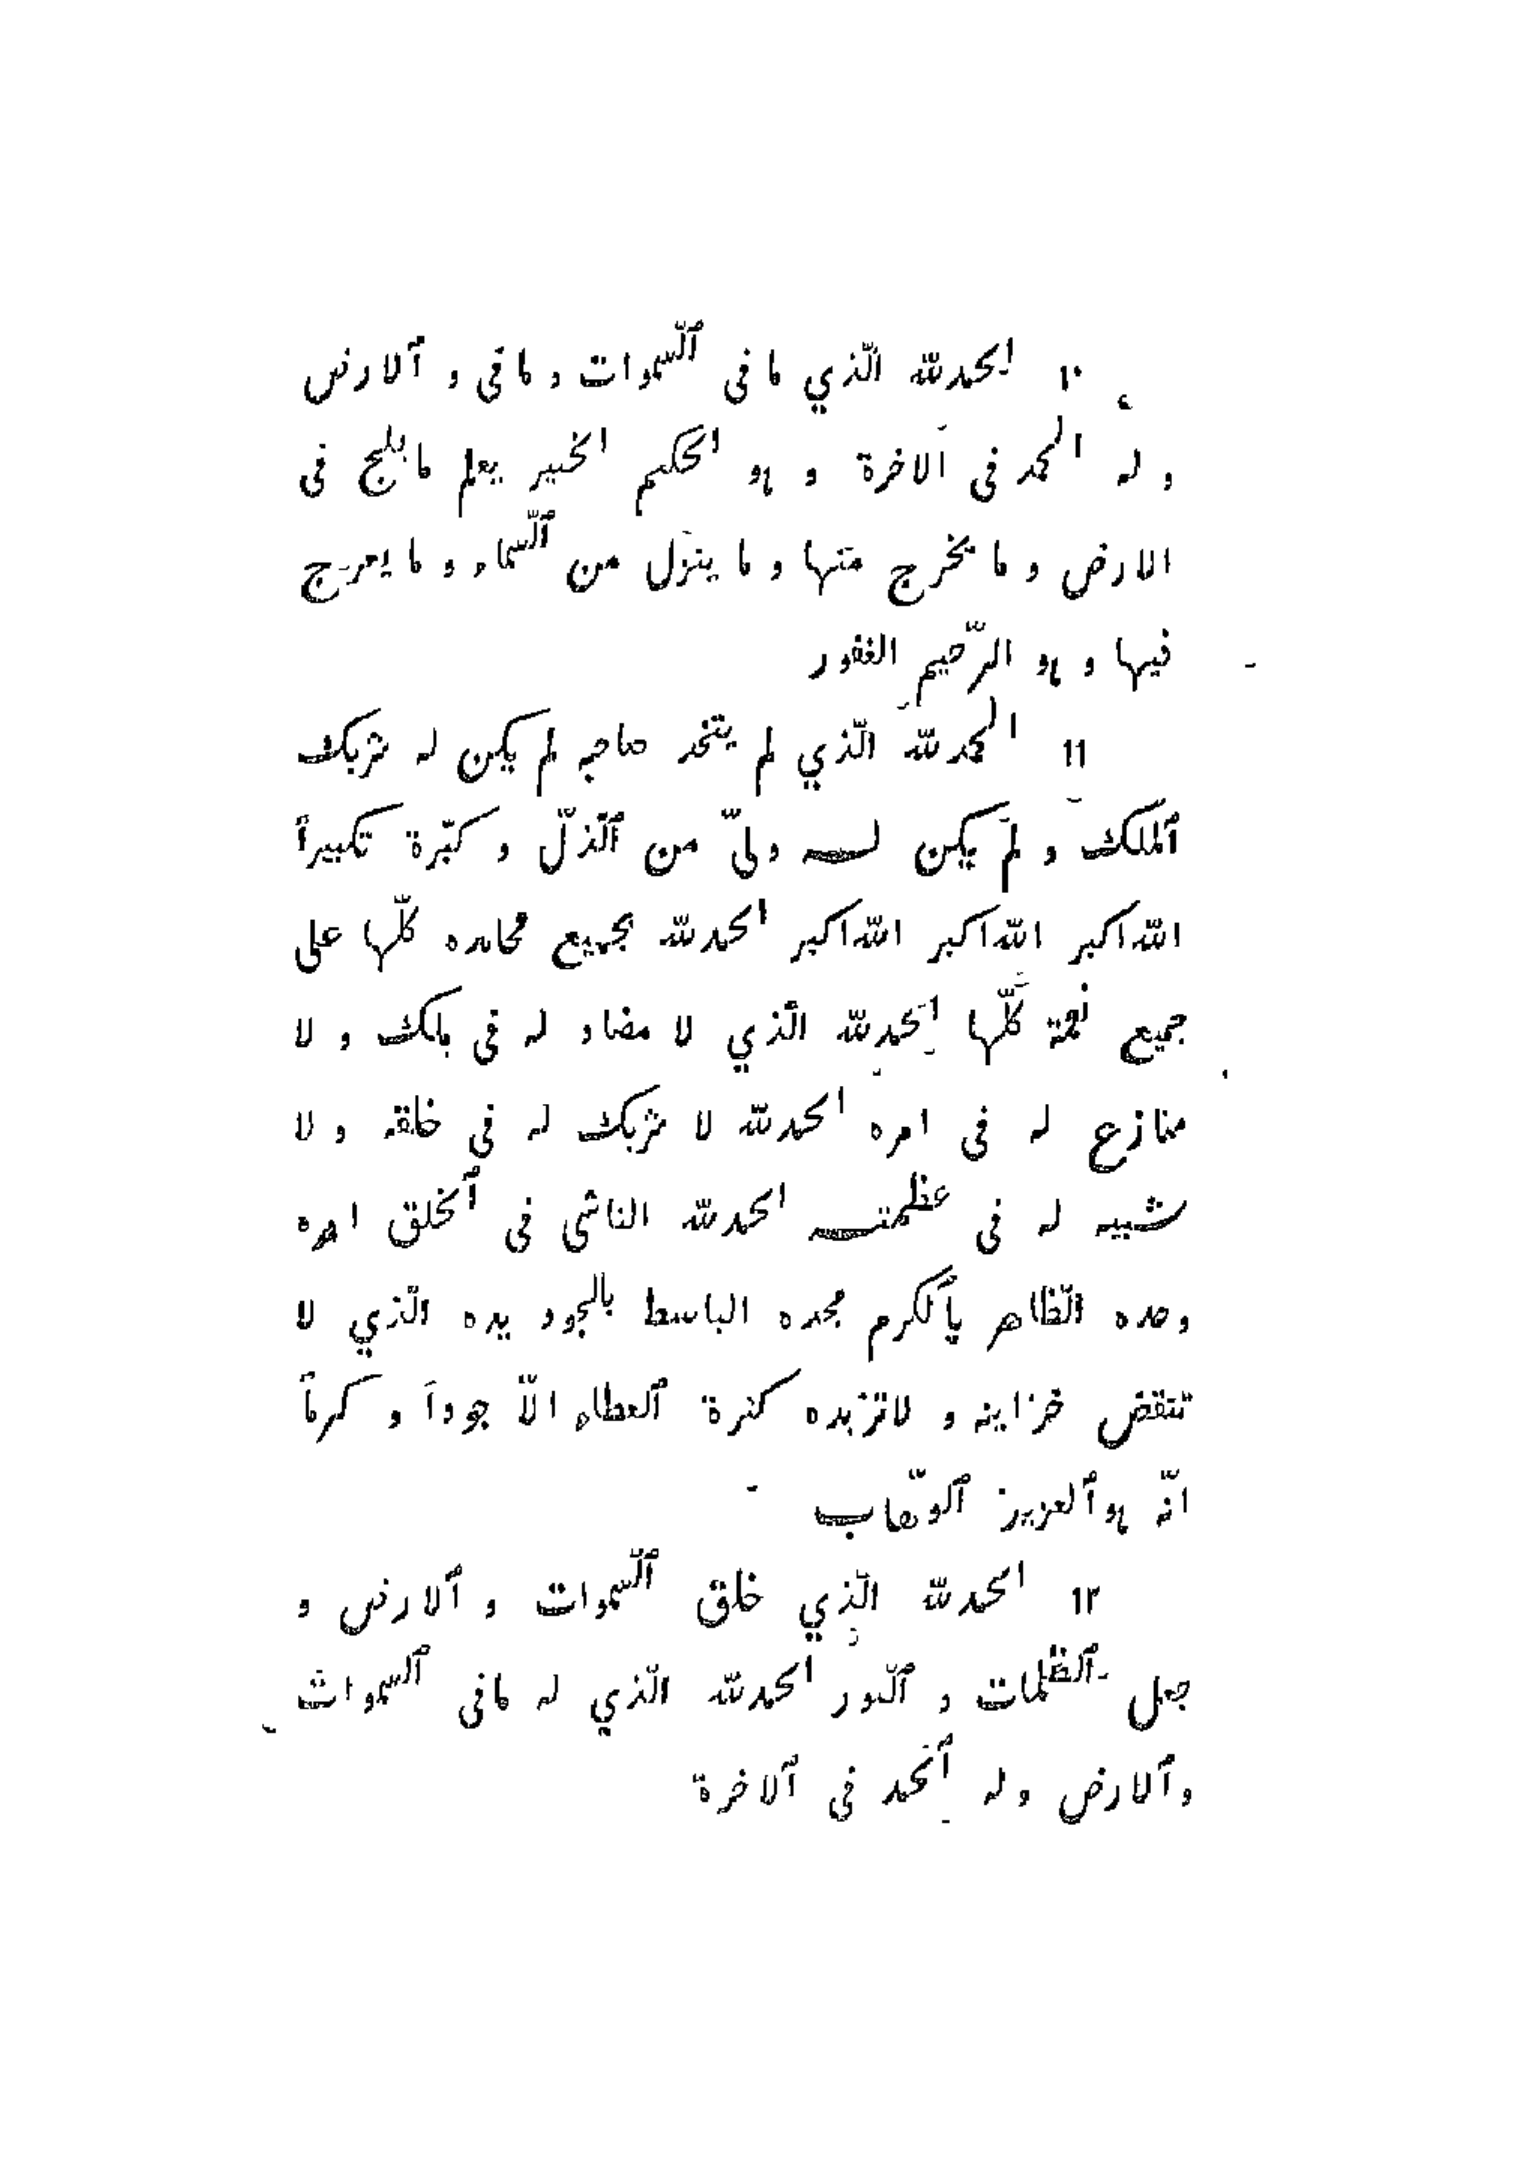 ١٠ الحمدلله الّذي ما فى ٱلّسموات و ما قى و ٱلارض
و له الحمد فى الاخرة و هو الحكيم الخبير يعلم ما يلج فى
الارض و ما يخرج منها و ما ينزل من ٱلّسماء و ما يعرج
فيها و هو الرّحيم الغفور
١١ الحمدلله الّذي لم يتخد صاحبه لم يكن له شربك
ٱلملك و لم يكن له ولىّ من ٱلّذلّ و كبّرة تكبيراً
الله اكبر الله اكبر الله اكبر الحمدلله بجميع محامده كلّها على
جميع نعمة كلّها الحمدلله الّذي لا مضاد له فى ملك و لا
منازع له فى امره الحمدلله لا شربك له فى خلقه و لا
شبيه له فى عظمته الحمدلله الناشى فى ٱلخلق امره
وحده الّظاهر بٱلكرم مجده الباسط بالجود يده الّذي لا
تنقض خزاينه و لاتزبده كنرة ٱلعطاء الّا جوداَ و كرماً
انّه هو ٱلعزيز ٱلوّهاب
١٢ الحمدلله الّذي خلق ٱلّسموات و ٱلارض و
جعل ٱلظلمات و ٱلّنور الحمدلله الّذي له مافى ٱلسموات
وٱلارض وله ٱلحمد فى ٱلاخرة